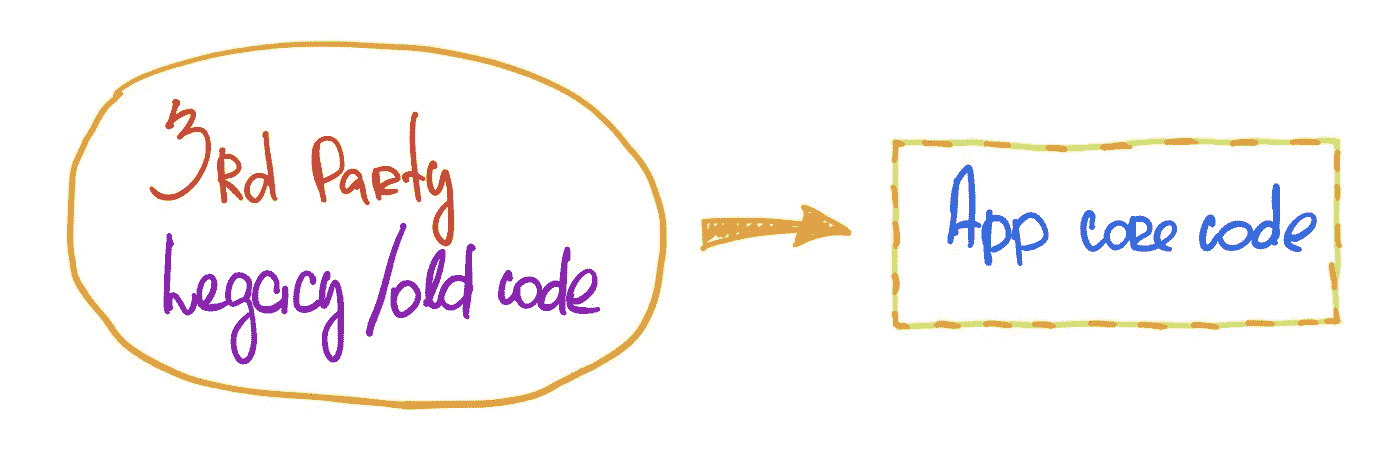 3Rd Party
Legacy/old code
App core code